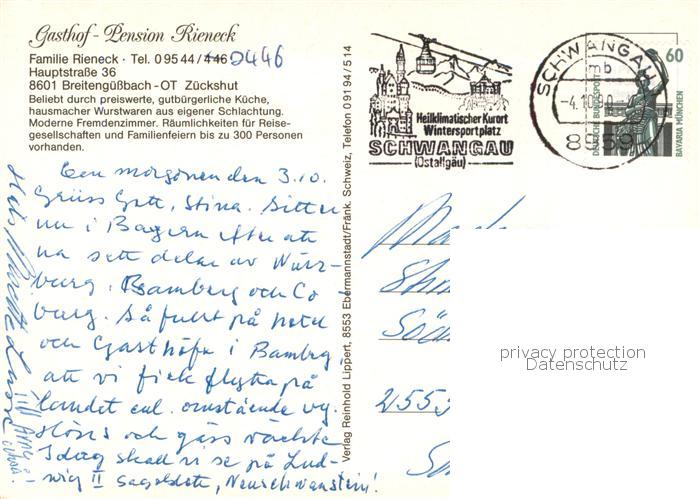 Gasthof - Pension Rieneck
Familie Rieneck · Tel. 0 95 44 / 446 0446
Hauptstraße 36
8601 Breitengüßbach - OT Zückshut
Beliebt durch preiswerte, gutbürgerliche Küche,
hausmacher Wurstwaren aus eigener Schlachtung.
Moderne Fremdenzimmer. Räumlichkeiten für Reise-
gesellschaften und Familienfeiern bis zu 300 Personen
vorhanden.
morgonen den 3.10.
Grüss Gott, Stina. Sitter
nu i Bayern efter att
ha sett delar av Würz-
burg, Bamberg och Co-
burg. Så fullt på hotell
och Gasthöfe i Bamberg
att vi fick flytta på
landet enl. omstående
och
Idag skall vi se på Lud-
wig II sagoslott, Neuschwanstein!
Verlag Reinhold Lippert, 8553 Ebermannstadt/Fränk. Schweiz, Telefon 0 91 94 / 5 14
Heilklimatischer Kurort
Wintersportplatz
SCHWANGAU
(Ostallgäu)
SCHWANGAU
mb
-4.10.90
8959
60
DEUTSCHE BUNDESPOST
BAVARIA MÜNCHEN
2553
privacy protection
Datenschutz